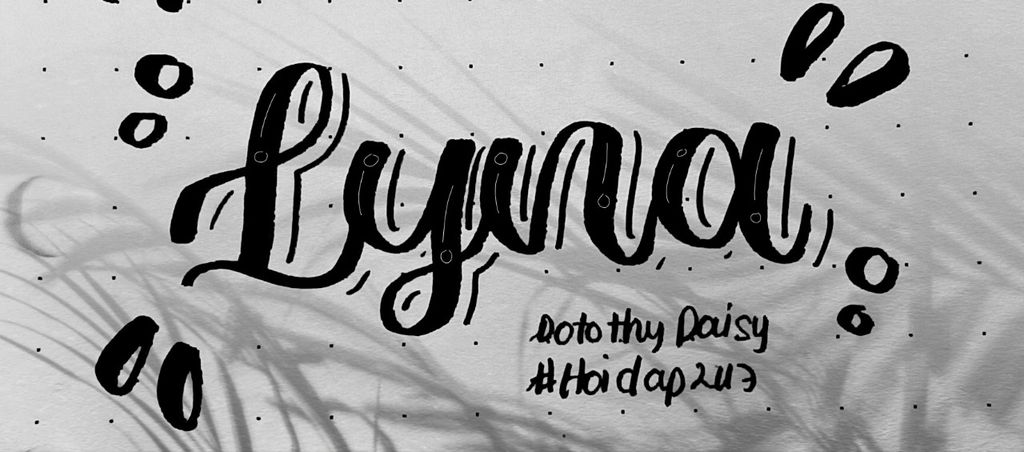 Lyna
Dotothy Daisy
#Hoidap247